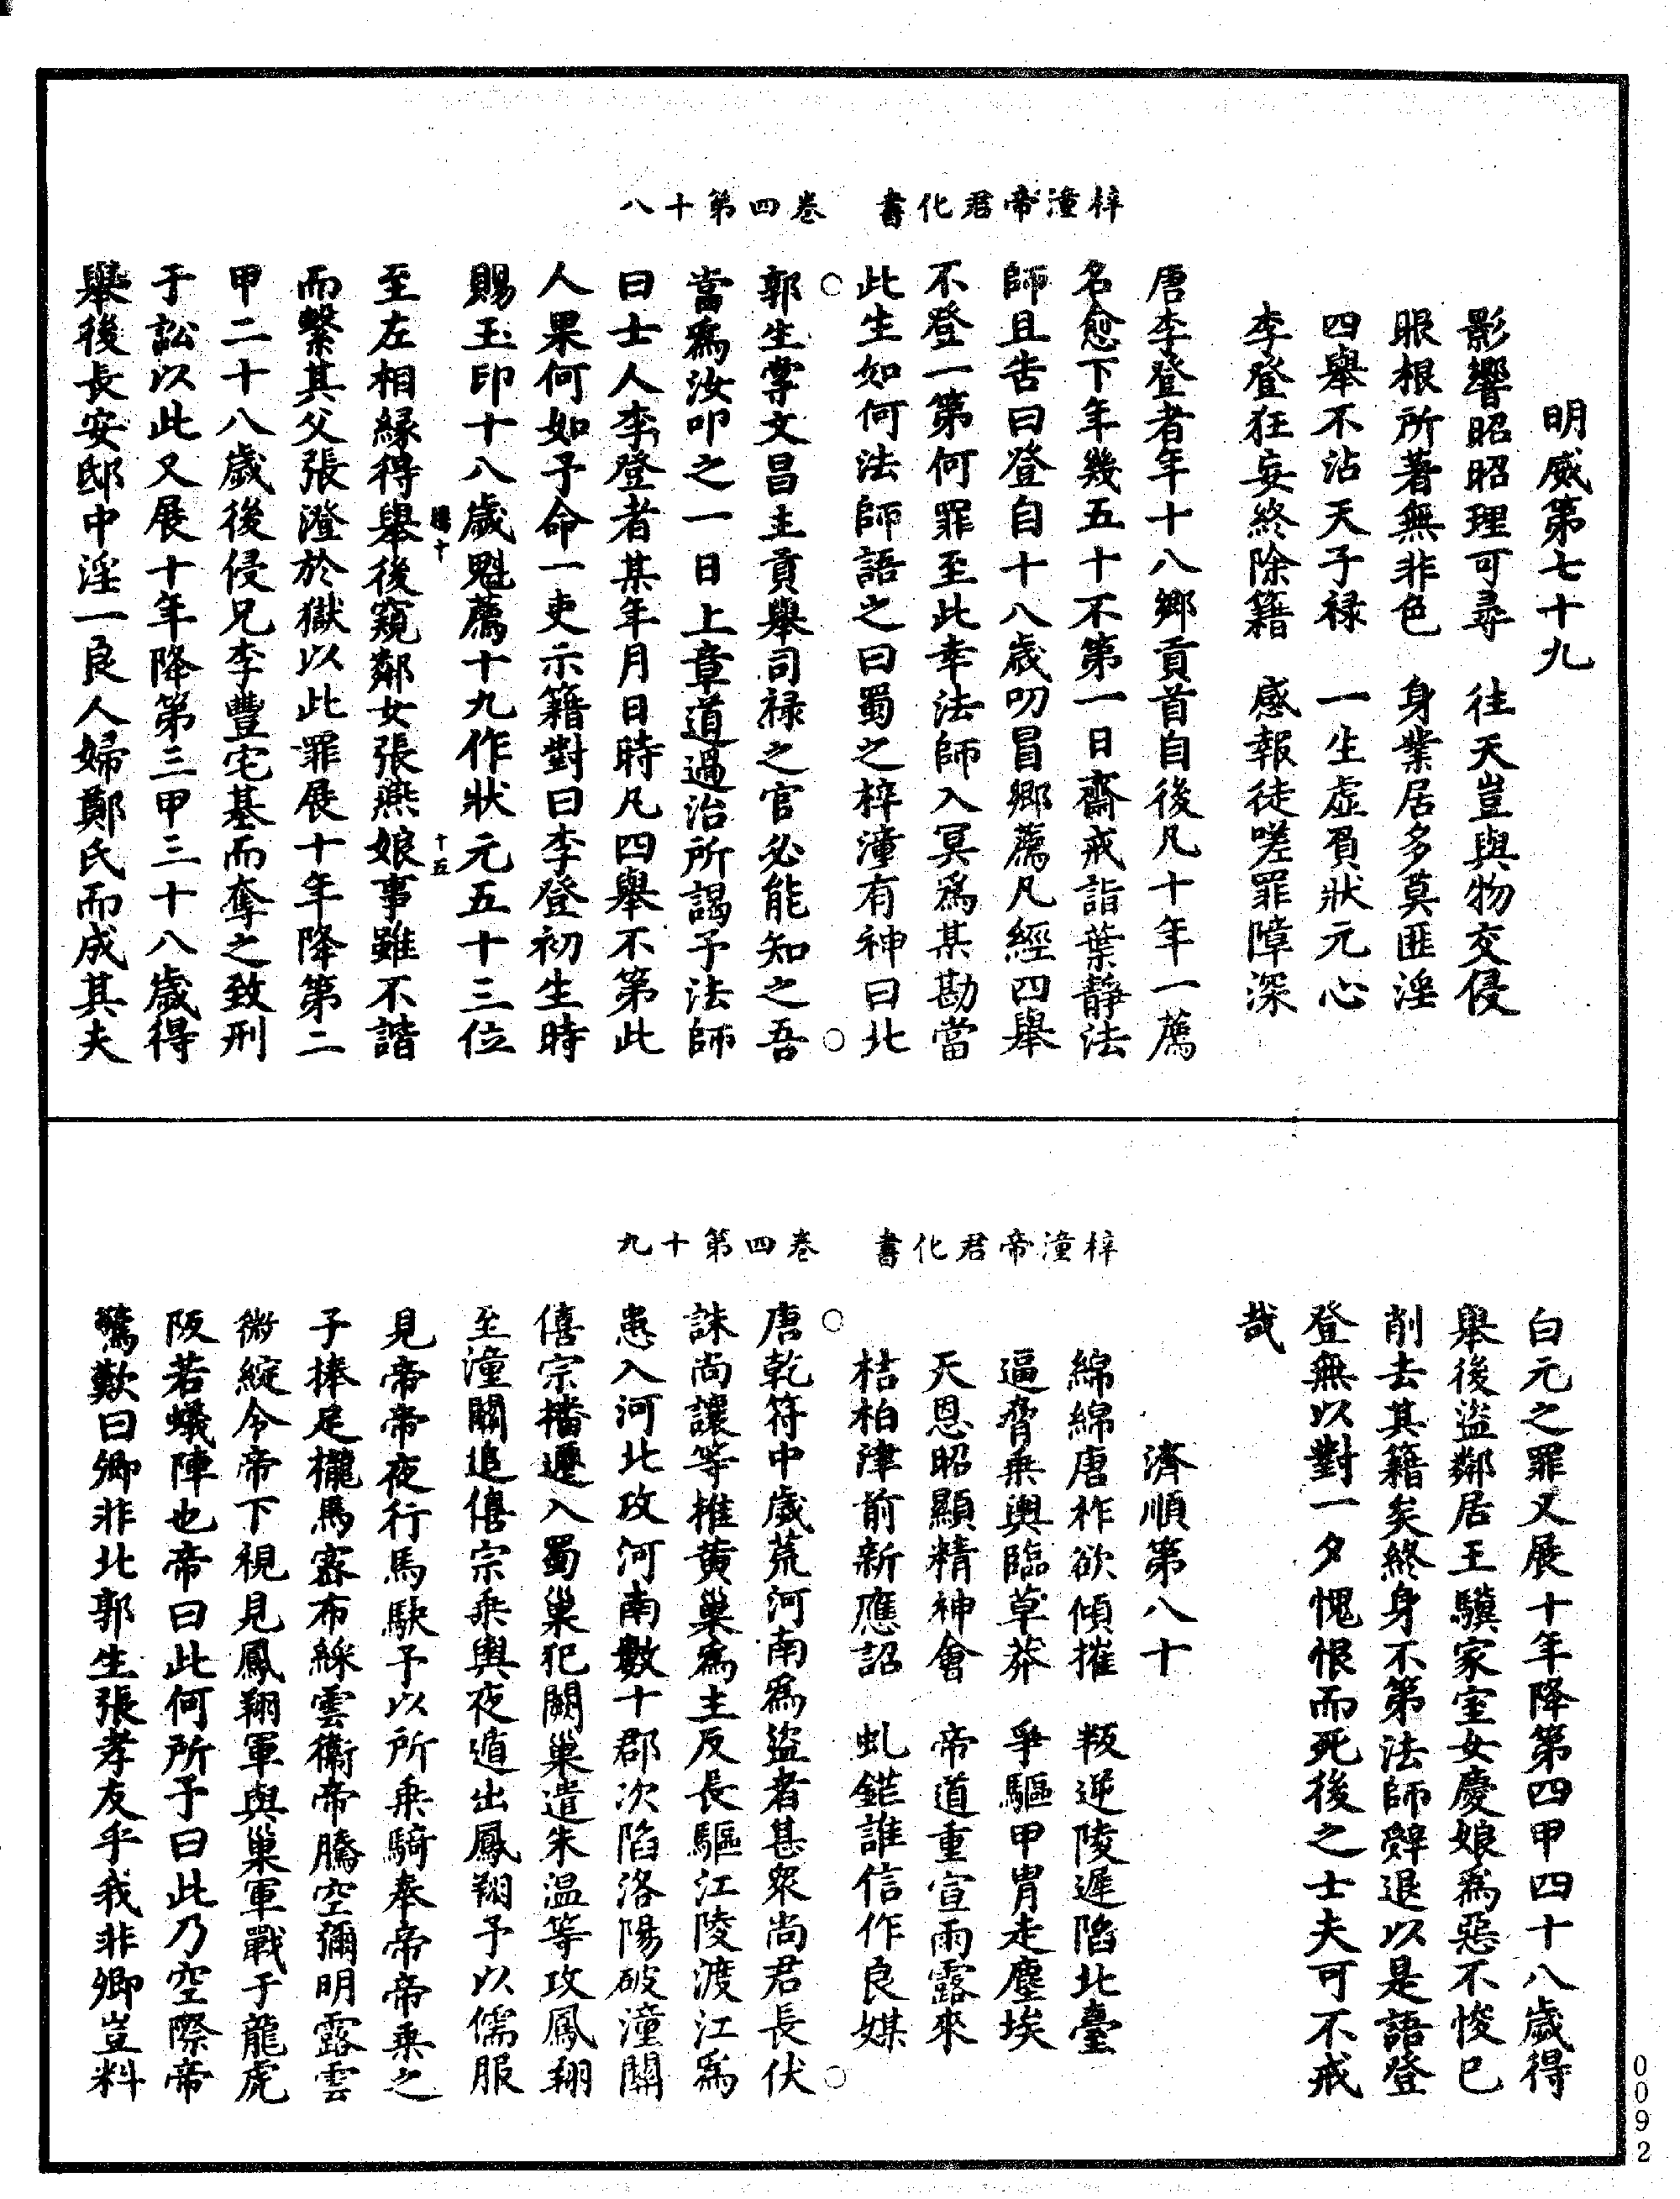 梓潼帝君化書　卷四第十八
明威第七十九
影響昭昭理可尋　往天豈與物交侵
眼根所著無非色　身業居多莫匪淫
四舉不沾天子祿　一生虛負狀元心
李登狂妄終除籍　感報徒嗟罪障深
唐李登者年十八鄉貢首自後凡十年一薦
名愈下年幾五十不第一日齋戒詣葉靜法
師且告曰登自十八歲叨冒鄉薦凡經四舉
不登一第何罪至此幸法師入冥爲某勘當
此生如何法師語之曰蜀之梓潼有神曰北
郭生掌文昌主貢舉司祿之官必能知之吾
當爲汝叩之一日上章道過治所謁予法師
曰士人李登者某年月日時凡四舉不第此
人果何如予命一吏示籍對曰李登初生時
賜玉印十八歲魁薦十九作狀元五十三位
十
十五
至左相緣得舉後窺鄰女張燕娘事雖不諧
而繫其父張澄於獄以此罪展十年降第二
甲二十八歲後侵兄李豐宅基而奪之致刑
于訟以此又展十年降第三甲三十八歲得
舉後長安邸中淫一良人婦鄭氏而成其夫
梓潼帝君化書　卷四第十九
白元之罪又展十年降第四甲四十八歲得
舉後盜鄰居王驥家室女慶娘爲惡不悛已
削去其籍矣終身不第法師辭退以是語登
登無以對一夕愧恨而死後之士夫可不戒
哉
濟順第八十
綿綿唐祚欲傾摧　叛逆陵遲陷北臺
逼脅乘輿臨草莽　爭驅甲冑走塵埃
天恩昭顯精神會　帝道重宣雨露來
桔柏津前新應詔　虬鎧誰信作良媒
唐乾符中歲荒河南爲盜者甚衆尚君長伏
誅尚讓等推黃巢爲主反長驅江陵渡江爲
患入河北攻河南數十郡次陷洛陽破潼關
僖宗播遷入蜀巢犯闕巢遣朱温等攻鳳翔
至潼關追僖宗乘輿夜遁出鳳翔予以儒服
見帝帝夜行馬駃予以所乘騎奉帝帝乘之
子捧足櫳馬密布綵雲衛帝騰空彌明露雲
微綻令帝下視見鳳翔軍與巢軍戰于龍虎
阪若蟻陣也帝曰此何所予曰此乃空際帝
驚歎曰卿非北郭生張孝友乎我非卿豈料
0092